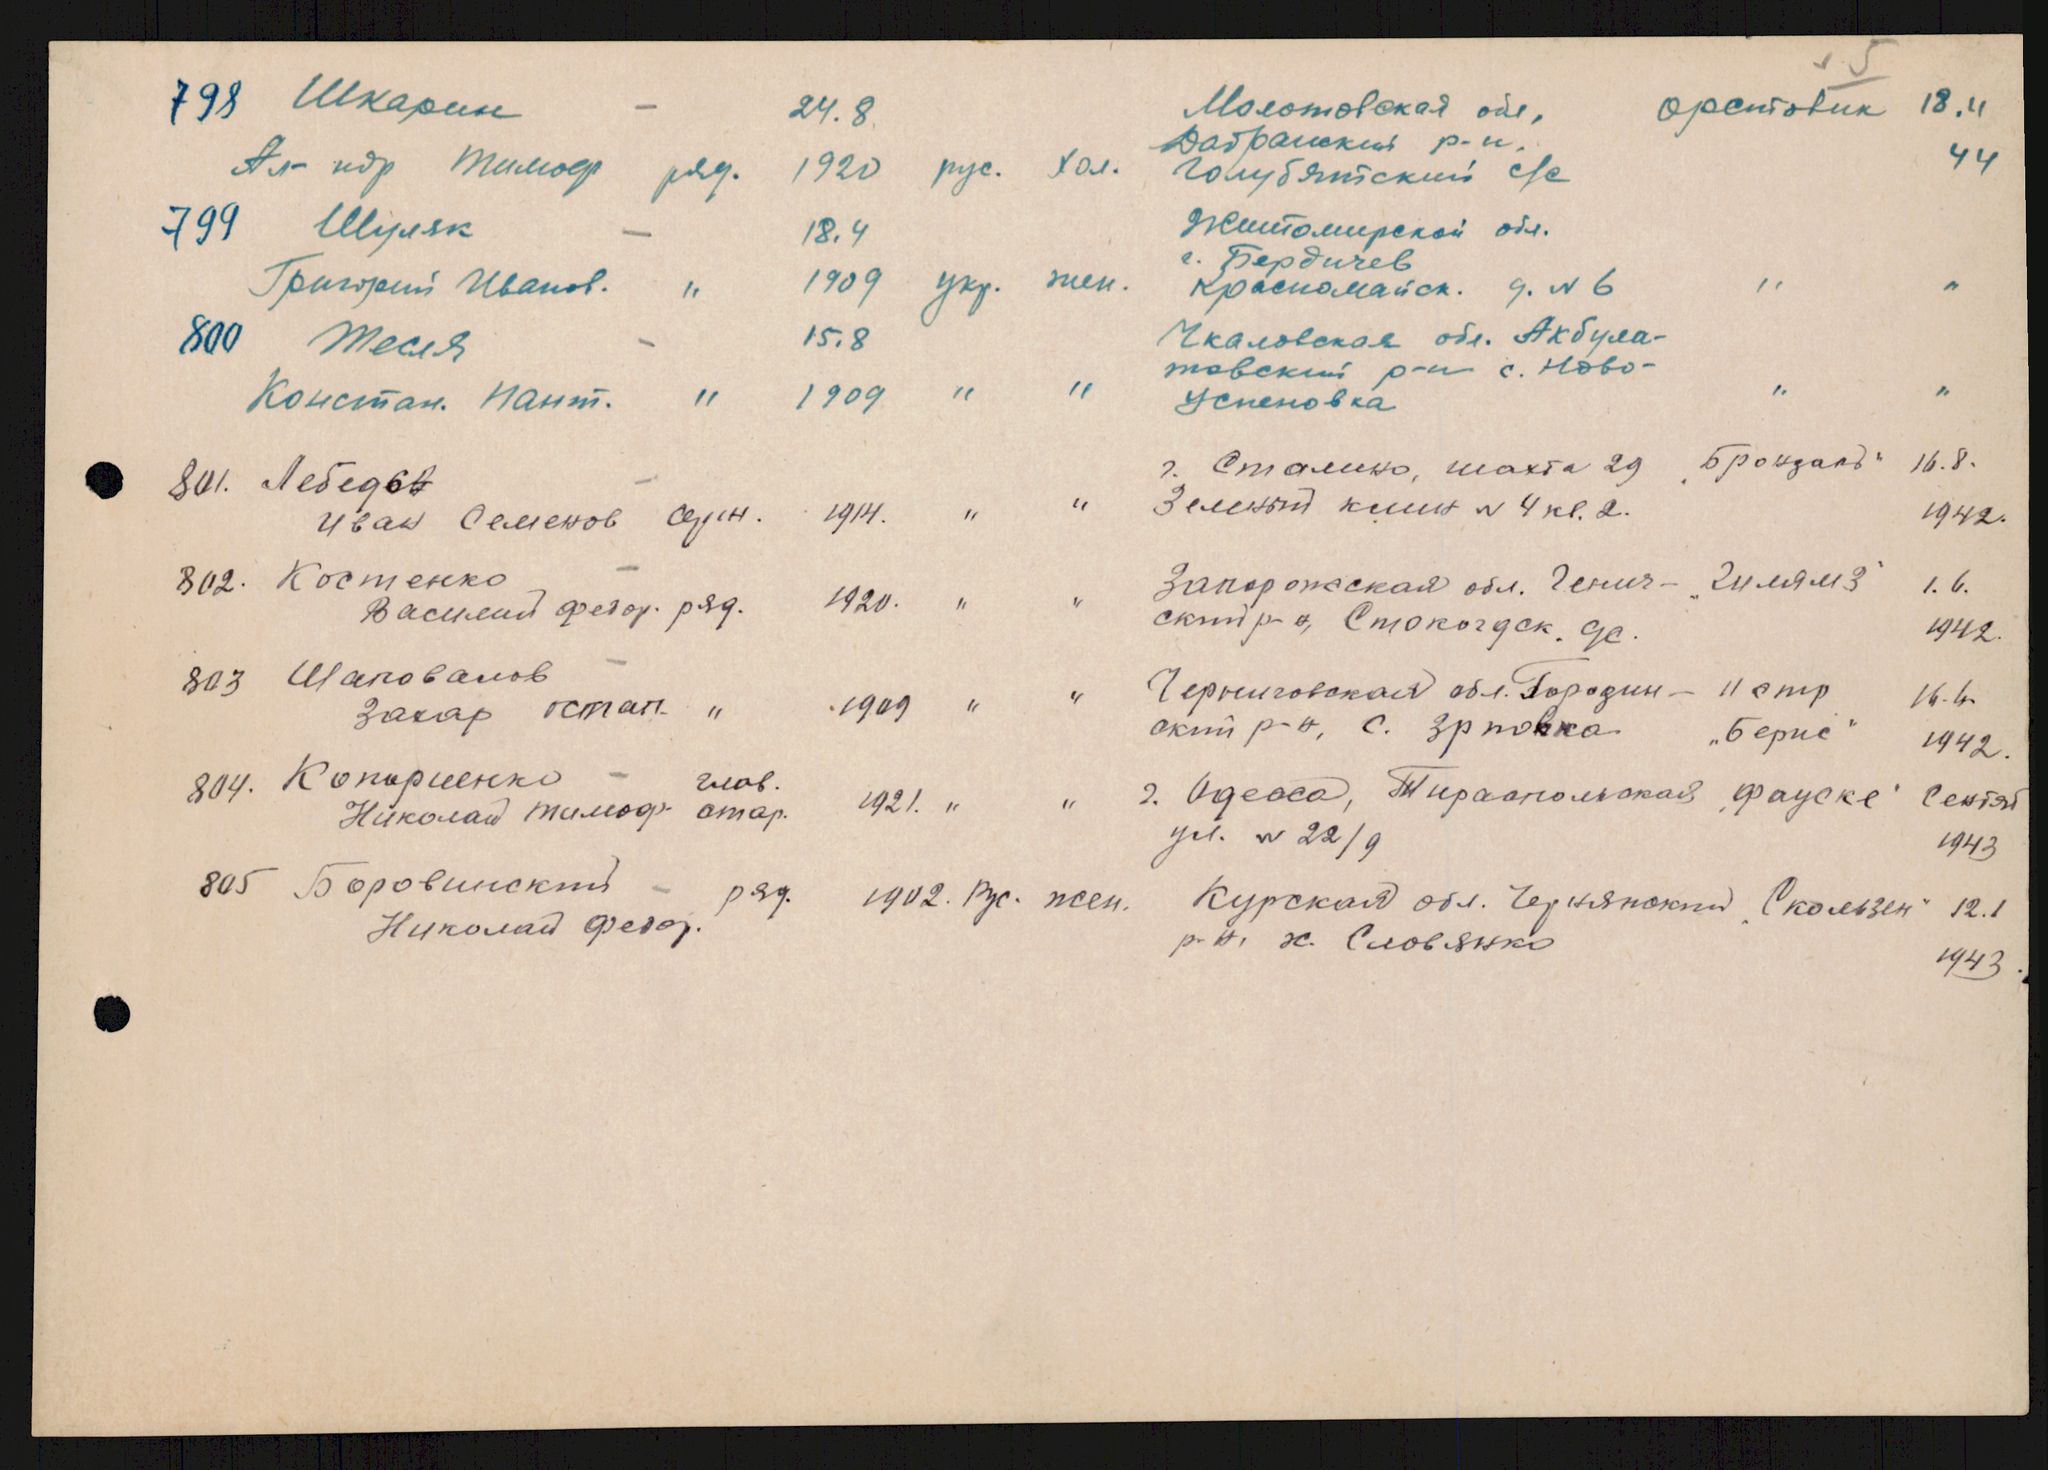 5
798 Шкарин — 24.8. Молотовская обл, Орстовик 18.4
Добранский р-н. 44
Ал-ндр Тимоф ряд. 1920 рус. хол. Голубятский с/с
799 Шуляк — 18.4 Житомирской обл.
г. Бердичев
Григорий Иванов. " 1909 укр. жен. Красномайск. д. № 6 " "
800 Тесля — 15.8 Чкаловская обл. Акбула-
товский р-н с. Ново-
Констан. Пант. " 1909 " " Успеновка " "
801. Лебедев — г. Сталино, шахта 29 „Брондаль" 16.8.
Иван Семенов 1914. " " Зелений клин № 4 кв. 2. 1942.
802. Костенко — Запорожская обл. Генич- 1.6.
Василий Федор. ряд. 1920. " " ский р-н, 1942.
803 Шаповалов — Черниговская обл. Городин- 16.6
Захар Остап. " 1909 " " ский р-н, с. „Берис" 1942.
804. — глав. г. Одесса, Тираспольская „Фауске" Сентяб
Николай Тимоф. стар. 1921. " " ул. № 22/9 1943
805 Боровинский — ряд. 1902. Рус. жен. Курская обл. Чернянский „Скользен" 12.1
Николай Федор. р-н, х. Словянко 1943.